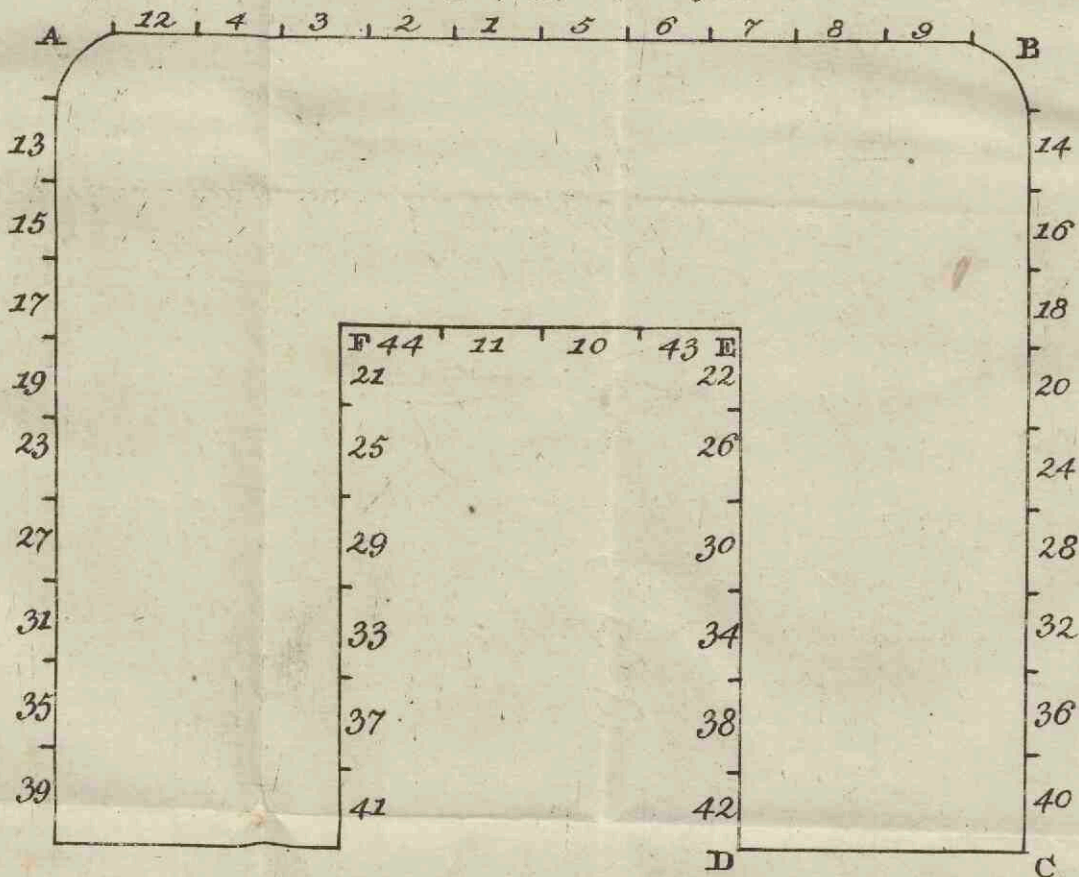 A 12 4 3 2 1 5 6 7 8 9 B
13 14
15 16
17 18
F 44 11 10 43 E
19 21 22 20
23 25 26 24
27 29 30 28
31 33 34 32
35 37 38 36
39 41 42 40
D C